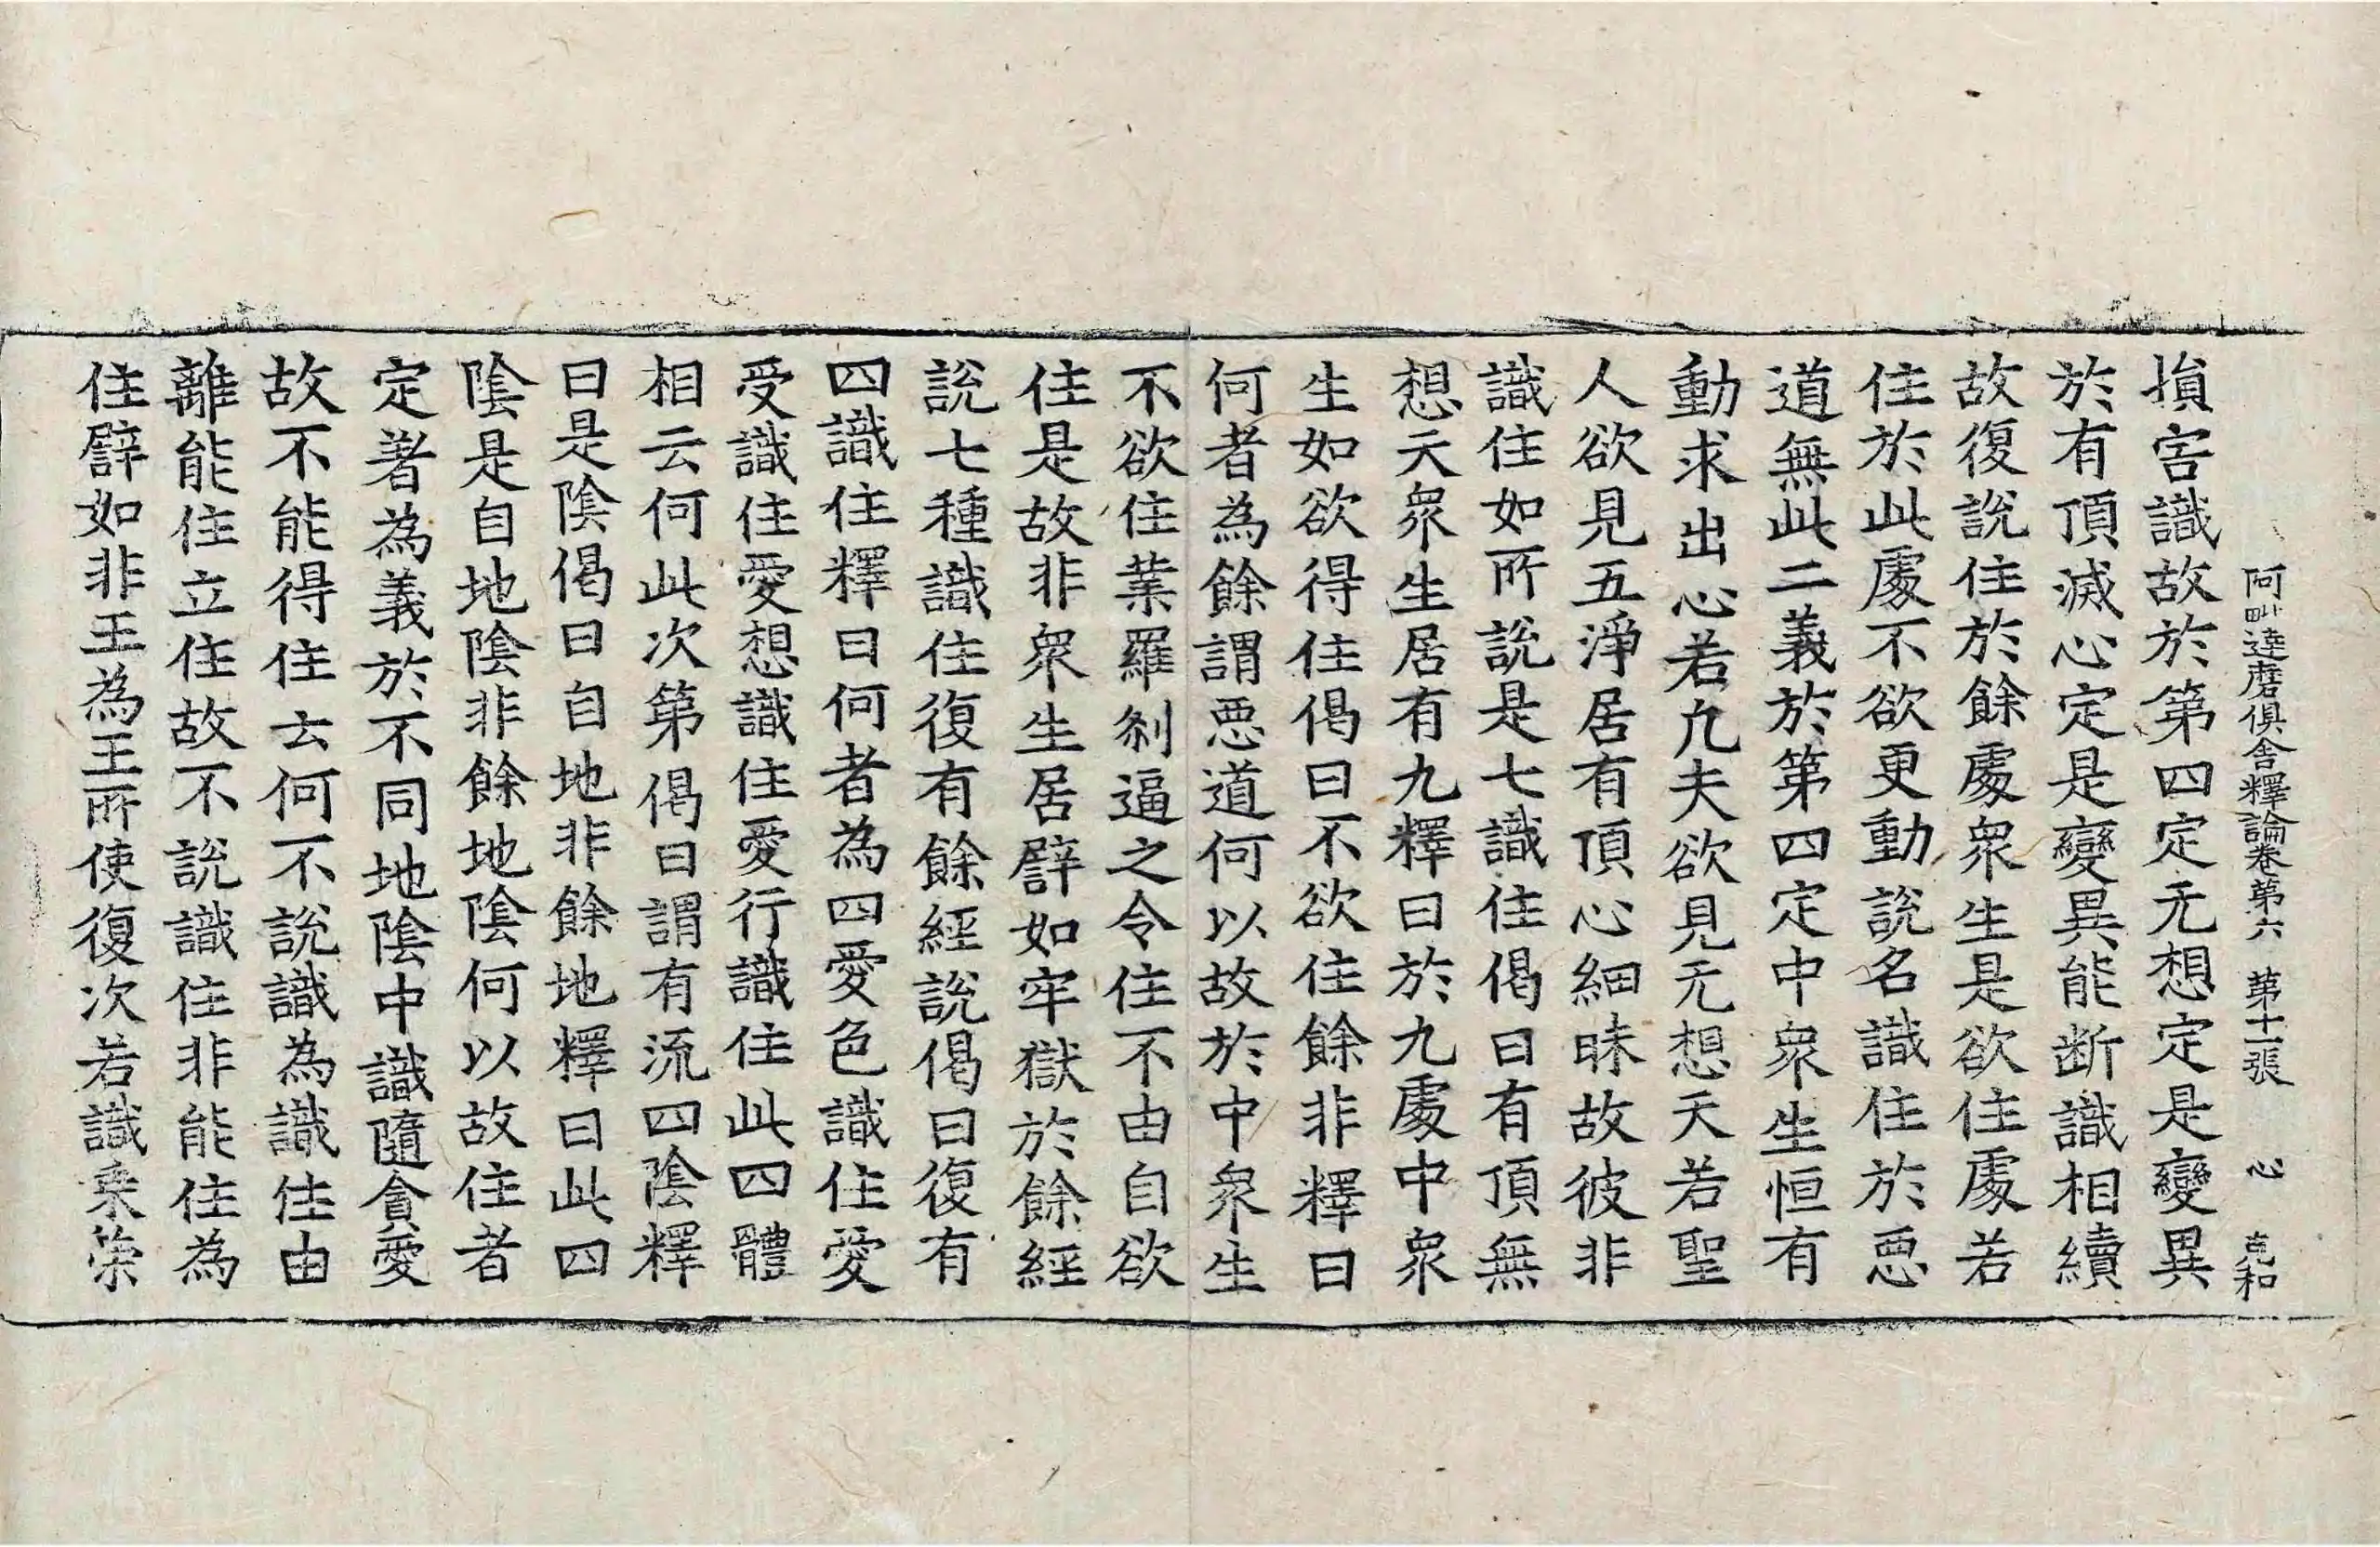 阿毗達磨俱舍釋論卷第六　第十二張　心　克和
損害識故於第四定无想定是變異
於有頂滅心定是變異能断識相續
故復說住於餘處衆生是欲住處若
住於此處不欲更動說名識住於惡
道無此二義於第四定中衆生恒有
動求出心若凢夫欲見无想天若聖
人欲見五淨居有頂心細昧故彼非
識住如所說是七識住偈曰有頂無
想天衆生居有九釋曰於九處中衆
生如欲得住偈曰不欲住餘非釋曰
何者為餘謂惡道何以故於中衆生
不欲住業羅刹逼之令住不由自欲
住是故非衆生居譬如牢獄於餘經
說七種識住復有餘經說偈曰復有
四識住釋曰何者為四愛色識住愛
受識住愛想識住愛行識住此四體
相云何此次第偈曰謂有流四陰釋
曰是陰偈曰自地非餘地釋曰此四
陰是自地陰非餘地陰何以故住者
定著為義於不同地陰中識隨貪愛
故不能得住云何不說識為識住由
離能住立住故不說識住非能住為
住譬如非王為王所使復次若識乘策